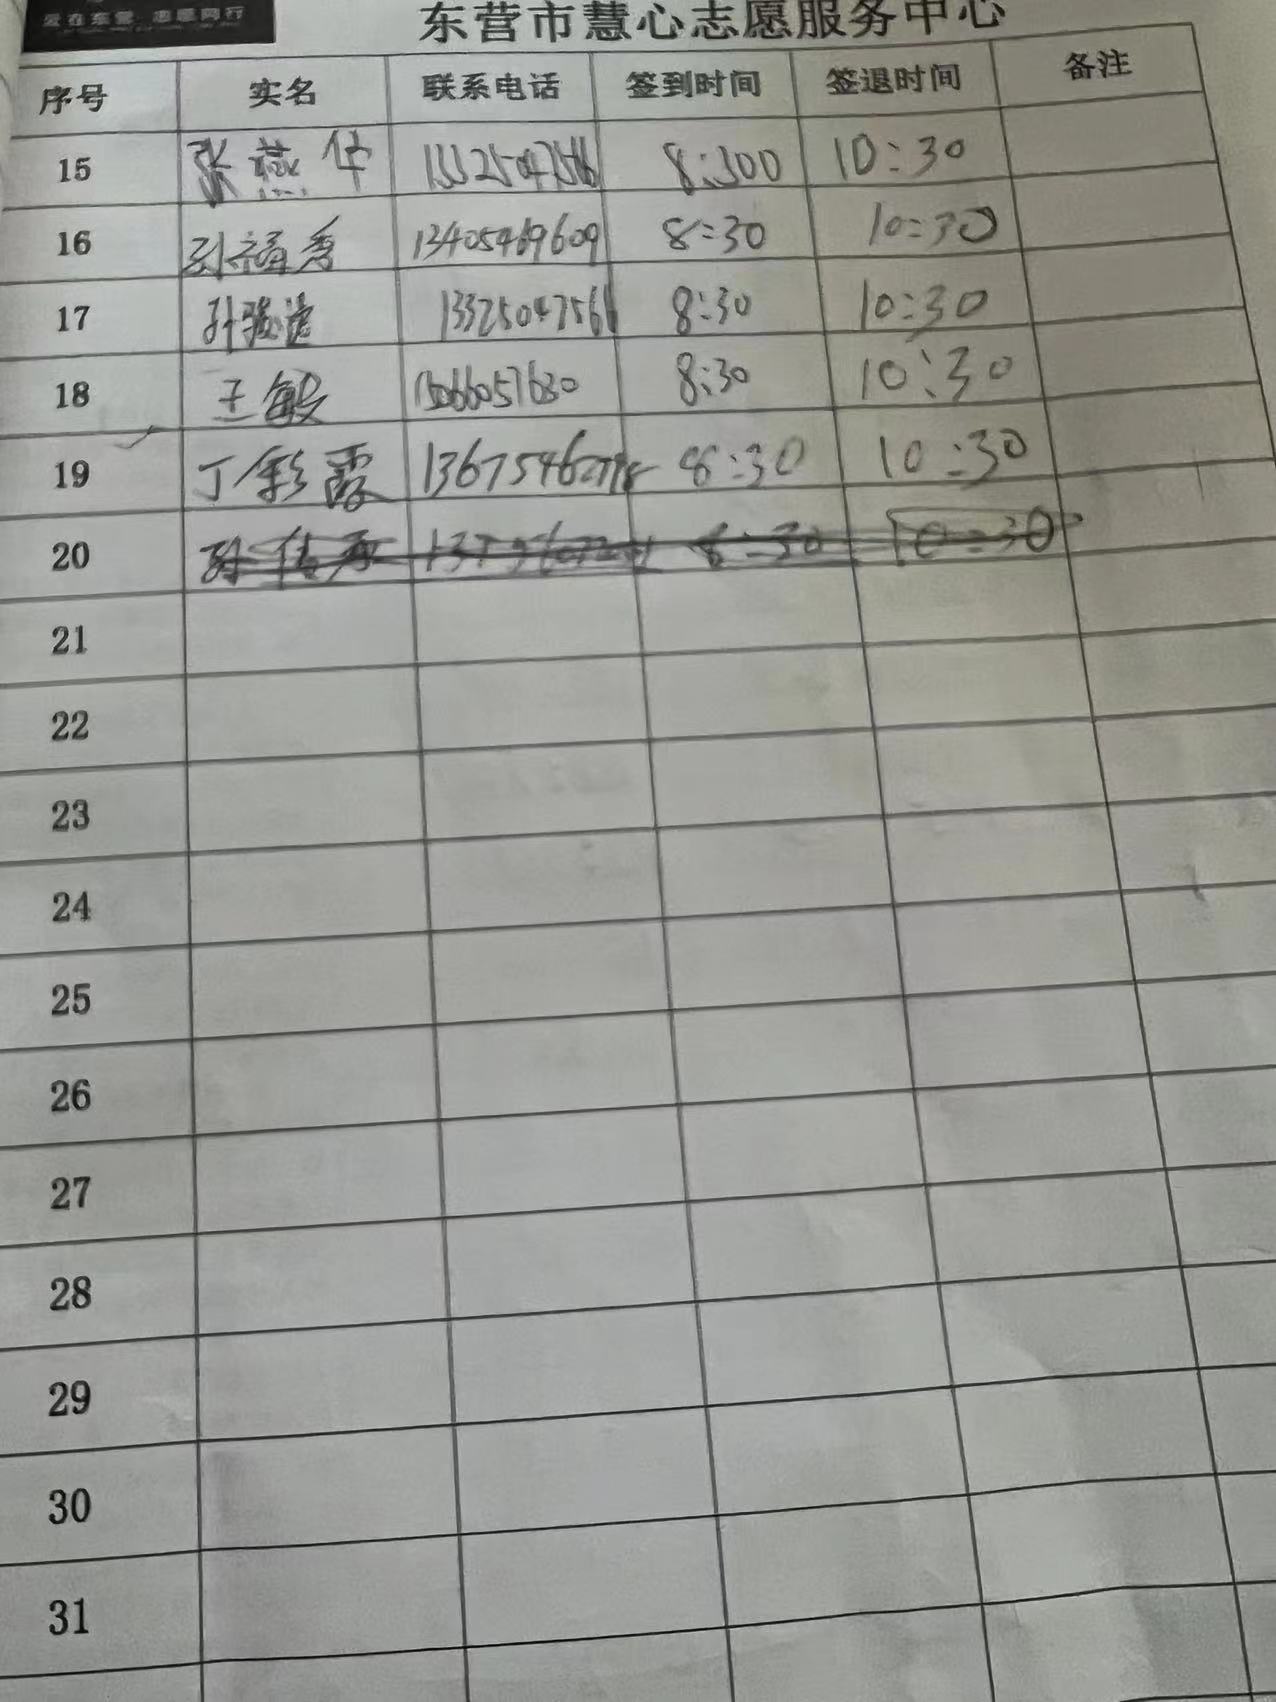 爱在东营 志愿同行
东营市慧心志愿服务中心
序号 实名 联系电话 签到时间 签退时间 备注
15 张燕华 13325047566 8:300 10:30
16 孙福秀 13405469609 8:30 10:30
17 1332504756 8:30 10:30
18 王敏 15066057680 8:30 10:30
19 丁彩霞 8:30 10:30
20 8:30 10:30
21
22
23
24
25
26
27
28
29
30
31